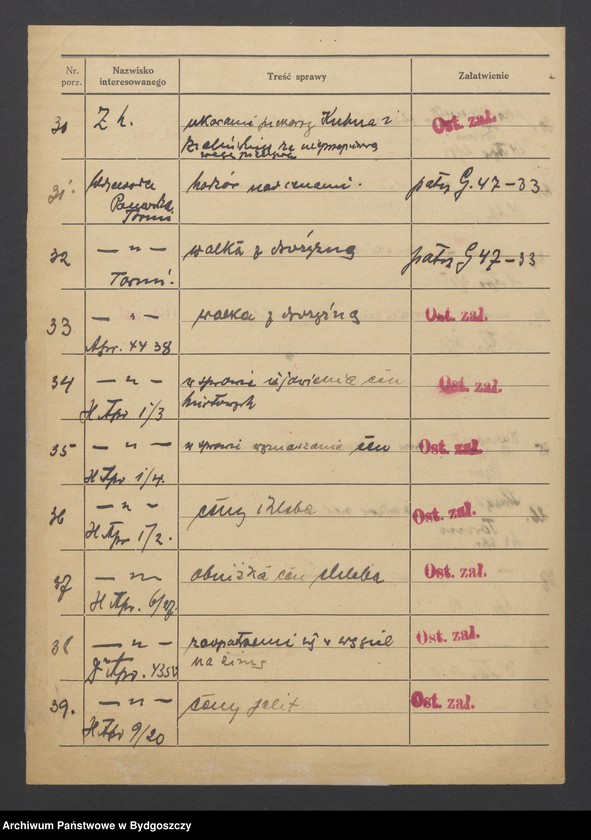 Nr. porz.
Nazwisko interesowanego
Treść sprawy
Załatwienie
30 Z h. ukarani piekarzy Kuhna i Ost. zał.
za
31. Wojewoda nad cenami. patrz G. 47-33
Toruń
32 — " — walka z drożyzną patrz G 47-33
Toruń.
33 — " — walka z drożyzną Ost. zał.
Apr. 44 38
34 — " — w sprawie ujawienia cen Ost. zał.
H Apr 1/3
35 — " — w sprawi wyznaczania cen Ost. zał.
H Apr 1/4.
36 — " — ceny chleba Ost. zał.
H. Apr 1/2.
37 — " — obniżka cen chleba Ost. zał.
H Apr. 6/27.
38 — " — zaopatrzeni się w węgiel Ost. zał.
Apr. 4350 na zimę
39. — " — ceny Ost. zał.
H Apr 9/20
Archiwum Państwowe w Bydgoszczy